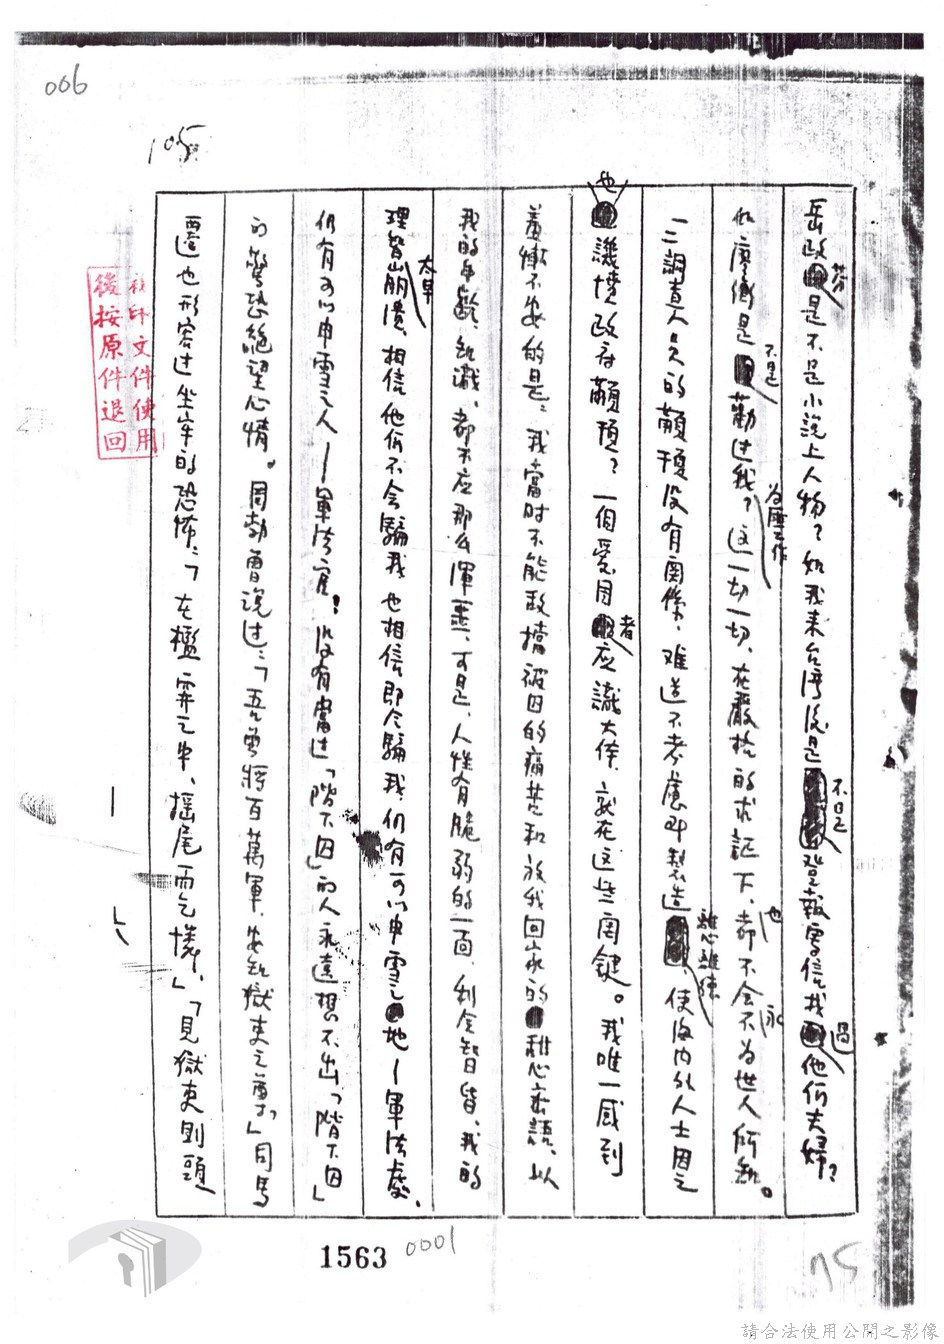 006
105
岳政芬是不是小說上人物？如我来台湾後是不是登報寫信找過他們夫婦？
似廖衡是不是勸过我？為匪工作这一切一切，在嚴格的求証下，都也不会永不為世人所知。
一二調查人員的顢頇没有関係，难道不考慮即製造 ，使海内外人士因之
也譏憤政府顢頇？一個爱国者应識大体，就在这些関鍵。我唯一感到
羞慚不安的是：我當时不能抵擋被囚的痛苦和放我回家的甜心蜜語，以
我的年齡、知識，都不应那么渾噩，可是，人性有脆弱的一面，利令智昏，我的
理智崩潰太早，相信他们不会騙我也相信即令騙我，仍有可以申雪之地－軍法處，
仍有可以申雪之人－軍法官！没有當过「階下囚」的人永遠想不出「階下囚」
的驚恐絕望心情。周勃曹説过：「吾曾將百萬軍，安知獄吏之尊」司馬
遷也形容过坐牢的恐怖：「在檻穽之中，搖尾而乞憐，」「見獄吏則頭
複印文件使用
後按原件退回
1563
0001
75
請合法使用公開之影像